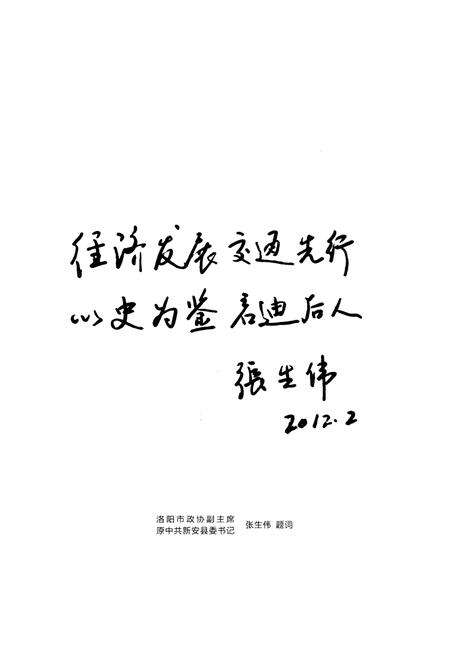 经济发展 交通先行
以史为鉴 启迪后人
張生伟
2012.2
洛阳市政协副主席
原中共新安县委书记 张生伟 题词